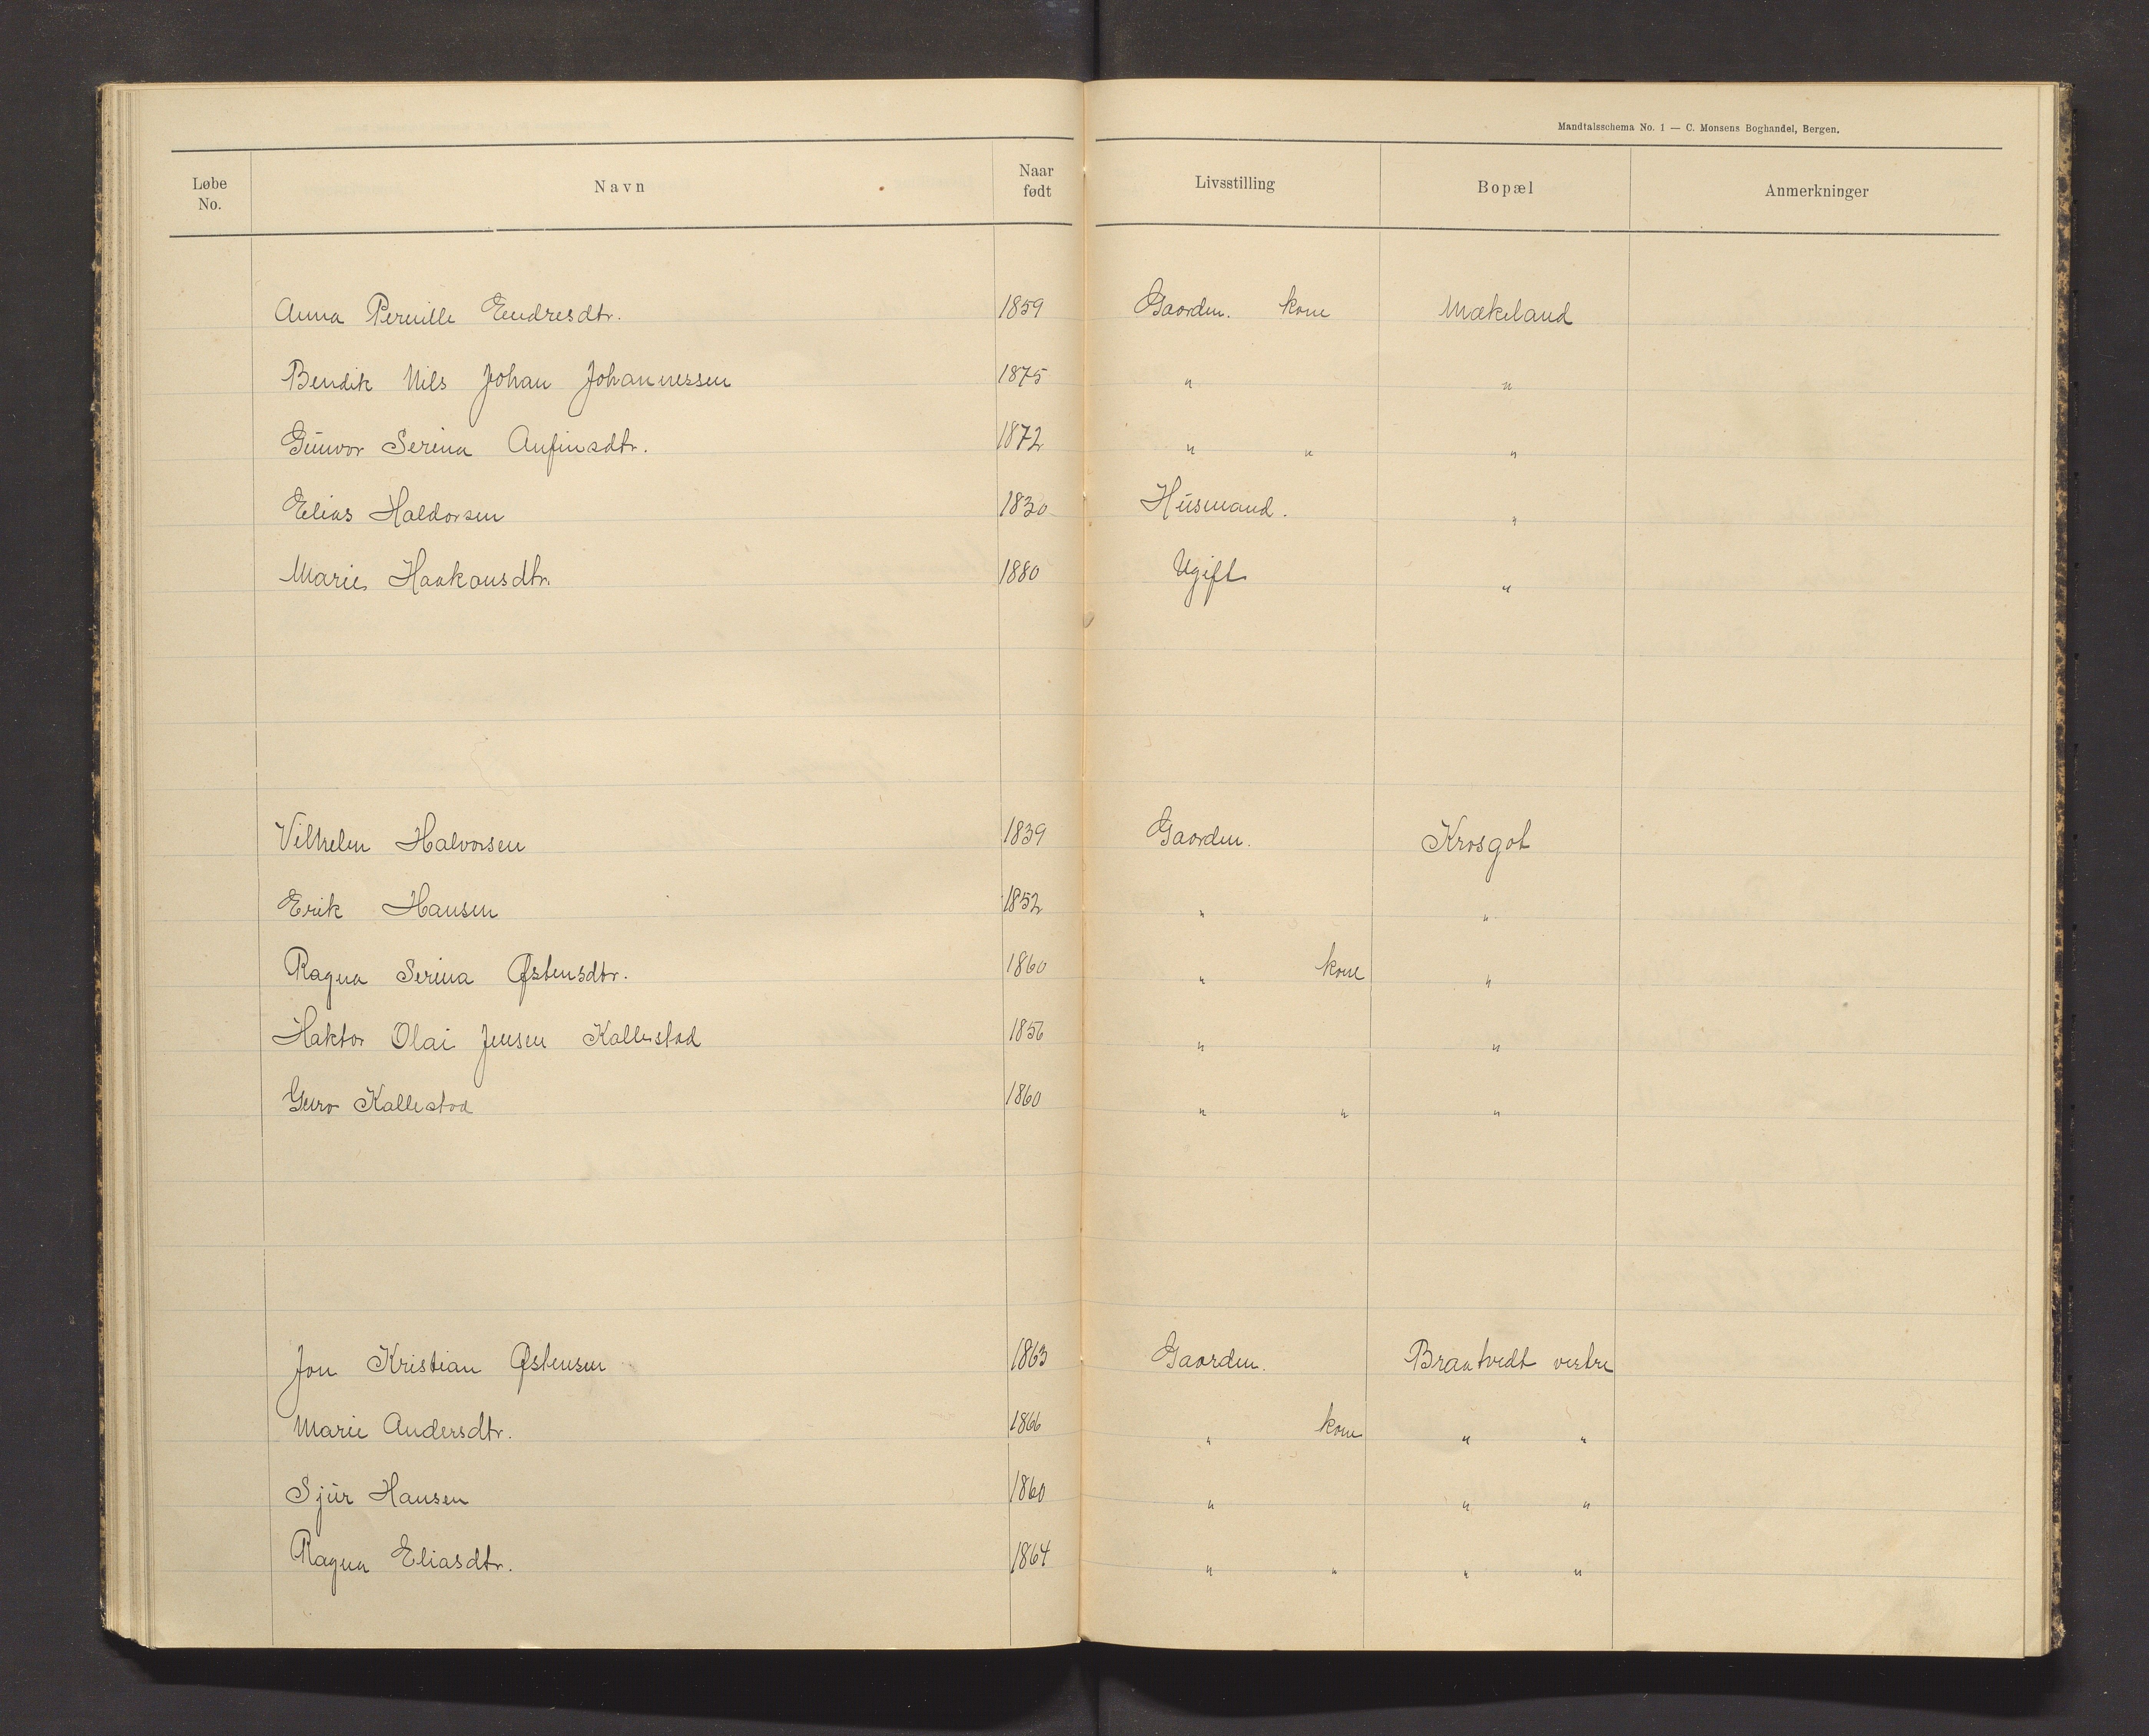 Mandtalsschema No. 1 — C. Monsens Boghandel, Bergen.
Løbe No. Navn Naar født Livsstilling Bopæl Anmerkninger
Anna Pernille Endresdtr. 1859 Gaardm. kone Mækeland
Bendik Nils Johan Johannessen 1875 " "
Gunvor Serina Anfinsdtr. 1872 " " "
Elias Haldorsen 1830 Husmand. "
Marie Haakonsdtr. 1880 Ugift "
Vilhelm Halvorsen 1839 Gaardm. Krosgot
Erik Hansen 1852 " "
Ragna Serina Østensdtr. 1860 " kone "
Haktor Olai Jensen Kallestad 1856 " "
Guro Kallestad 1860 " " "
Jon Kristian Østensen 1863 Gaardm. Braatvedt vestre
Marie Andersdtr. 1866 " kone " "
Sjur Hansen 1860 " " "
Ragna Eliasdtr. 1864 " " " "